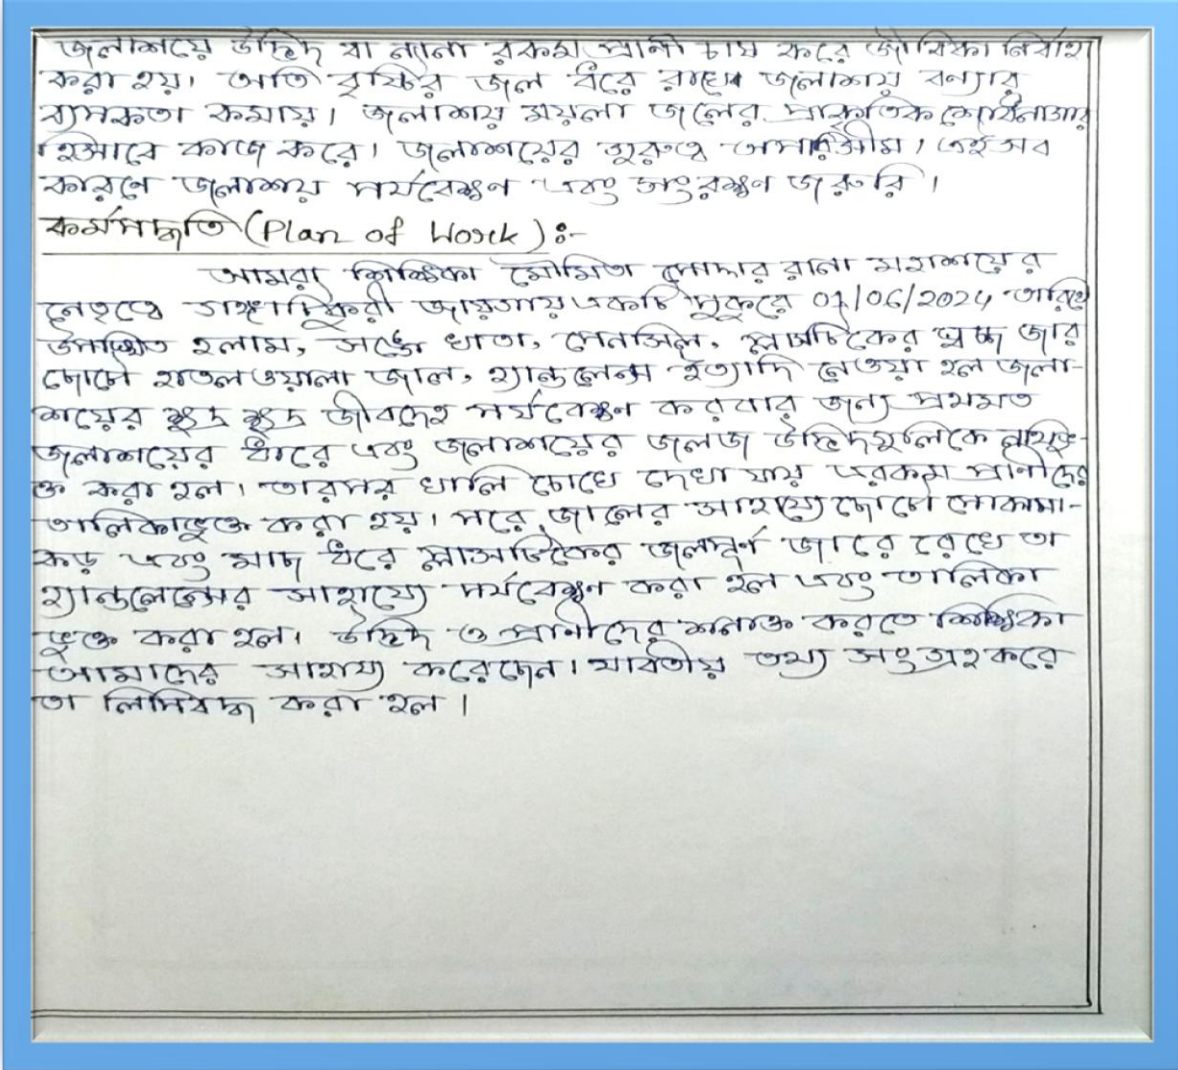 জলাশয়ে উদ্ভিদ বা নানা রকম প্রানী চাষ করে জীবিকা নির্বাহ
করা হয়। অতি বৃষ্টির জল ধরে রাখে জলাশয় বন্যার
ব্যাপকতা কমায়। জলাশয় ময়লা জলের প্রাকৃতিক শোধনাগার
হিসাবে কাজ করে। জলাশয়ের গুরুত্ব অপরিসীম। এই সব
কারণে জলাশয় পর্যবেক্ষণ এবং সংরক্ষণ জরুরি।
কর্মপদ্ধতি (Plan of Work) :-
আমরা শিক্ষিকা মৌমিতা পোদ্দার রানা মহাশয়ের
নেতৃত্বে জায়গায় একটি পুকুরে 07/06/2024 তারিখ
উপস্থিত হলাম, সঙ্গে খাতা, পেনসিল, প্লাসটিকের স্বচ্ছ জার
ছোটো হাতলওয়ালা জাল, হ্যান্ডলেন্স ইত্যাদি নেওয়া হল জলা-
শয়ের ক্ষুদ্র ক্ষুদ্র জীবদের পর্যবেক্ষণ করবার জন্য প্রথমত
জলাশয়ের ধারে এবং জলাশয়ের জলজ উদ্ভিদগুলিকে
ক্ত করা হল। তারপর খালি চোখে দেখা যায় এরকম প্রাণীদের
তালিকাভুক্ত করা হয়। পরে জালের সাহায্যে ছোটো পোকামা-
কড় এবং মাছ ধরে প্লাসটিকের জলপূর্ণ জারে রেখে তা
হ্যান্ডলেন্সের সাহায্যে পর্যবেক্ষণ করা হল এবং তালিকা
ভুক্ত করা হল। উদ্ভিদ ও প্রাণীদের শনাক্ত করতে শিক্ষিকা
আমাদের সাহায্য করেছেন। যাবতীয় তথ্য সংগ্রহ করে
তা লিপিবদ্ধ করা হল।